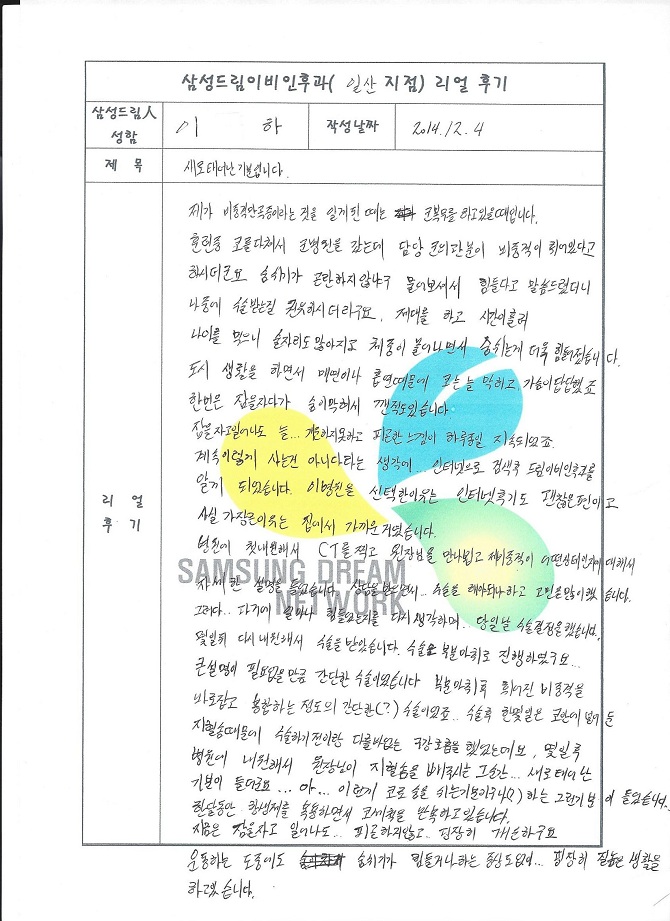 삼성드림이비인후과( 일산 지점) 리얼 후기
삼성드림人 성함 이 하 작성날짜 2014.12.4
제 목 새로태어난기분입니다.
리 얼 후 기
제가 비중격만곡증이라는 것을 알게된 때는 군복무를 하고있을때입니다.
훈련중 코를다쳐서 군병원을 갔는데 담당 군의관분이 비중격이 휘어있다고
하시더군요 숨쉬기가 곤란하지않냐구 물어보셔서 힘들다고 말씀드렸더니
나중에 수술받는걸 권유하시더라구요. 제대를 하고 시간이흘러
나이를 먹으니 술자리도 많아지고 체중이 불어나면서 숨쉬는게 더욱 힘들어졌습니다.
도시 생활을 하면서 매연이나 흡연때문에 코는 늘 막히고 가슴이답답했죠
한번은 잠을자다가 숨이막혀서 깬적도있습니다
잠을자고일어나도 늘... 개운하지못하고 피곤한 느낌이 하루종일 지속되었죠.
계속이렇게 사는건 아니다라는 생각에... 인터넷으로 검색후 드림이비인후과를
알게 되었습니다. 이병원을 선택한이유는 인터넷후기도 괜찮은편이고
사실 가장큰이유는 집에서 가까운거였습니다.
병원에 첫내원해서 CT를찍고 원장님을 만나뵙고 제비중격이 어떤상태인지에 대해서
자세한 설명을 들었습니다. 상담을 받으면서... 수술을 해야되나하고 고민은많이했습니다.
그러다... 과거에 얼마나 힘들었는지를 다시생각하며... 당일날 수술결정을했습니다.
몇일뒤 다시내원해서 수술을 받았습니다. 수술은 부분마취로 진행하였구요...
큰설명이 필요없을만큼 간단한 수술이었습니다 부분마취후 휘어진 비중격을
바로잡고 봉합하는 정도의 간단한(?) 수술이었죠.. 수술후 한몇일은 코안에 넣어둔
지혈솜때문에 수술하기전이랑 다를바없는 구강호흡을 했었는데요, 몇일후
병원에 내원해서 원장님이 지혈솜을 빼주시는 그순간... 새로태어난
기분이 들더군요... 아... 이런게 코로 숨을 쉬는기분이구나(?) 하는 그런기분이 들었습니다.
한달동안 항생제를 복용하면서 코세척을 반복하고있습니다.
지금은 잠을자고 일어나도.. 피곤하지않고.. 굉장히 개운하구요
운동하는 도중에도 숨쉬기가 힘들거나하는 증상도없어... 굉장히 질높은 생활을
하고있습니다.
SAMSUNG DREAM
NETWORK